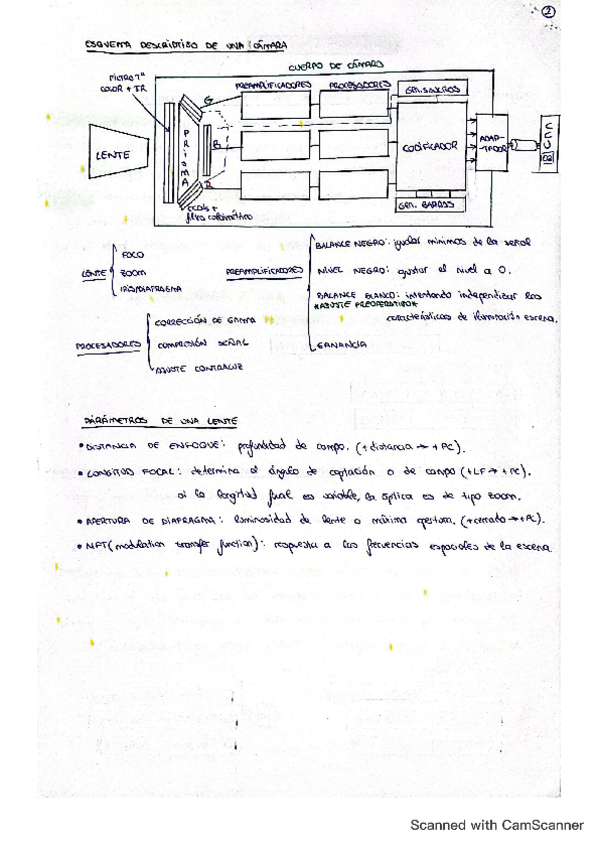 2
ESQUEMA DESCRIPTIVO DE UNA CÁMARA
CUERPO DE CÁMARA
FILTRO Tª
COLOR + IR
PREAMPLIFICADORES
PROCESADORES
GEN. SINCROS
G
LENTE
PRISMA
B
R
CODIFICADOR
ADAP-
TADOR
CCU
GEN. BARRAS
CCDs +
filtro colorimétrico
LENTE
FOCO
ZOOM
IRIS/DIAFRAGMA
PREAMPLIFICADORES
BALANCE NEGRO: igualar mínimos de la señal
NIVEL NEGRO: ajustar el nivel a 0.
BALANCE BLANCO: intentando independizar las
*AJUSTE PREOPERATIVO*
características de iluminación escena.
GANANCIA
PROCESADORES
CORRECCIÓN DE GAMMA
COMPRESIÓN SEÑAL
AJUSTE CONTRALUZ
PARÁMETROS DE UNA LENTE
• DISTANCIA DE ENFOQUE: profundidad de campo. (+distancia → +PC).
• LONGITUD FOCAL: determina el ángulo de captación o de campo (+LF → +PC).
si la longitud focal es variable, la óptica es de tipo zoom.
• APERTURA DE DIAFRAGMA: luminosidad de lente o máxima apertura. (+cerrado → +PC).
• MFT (modulation transfer function): respuesta a las frecuencias espaciales de la escena.
Scanned with CamScanner